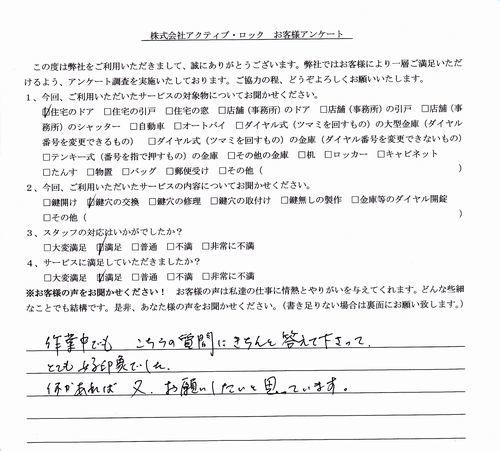 株式会社アクティブ・ロック　お客様アンケート
この度は弊社をご利用いただきまして、誠にありがとうございます。弊社ではお客様により一層ご満足いただ
けるよう、アンケート調査を実施いたしております。ご協力の程、どうぞよろしくお願いいたします。
1、今回、ご利用いただいたサービスの対象物についてお聞かせください。
□住宅のドア　□住宅の引戸　□住宅の窓　□店舗（事務所）のドア　□店舗（事務所）の引戸　□店舗（事
務所）のシャッター　□自動車　□オートバイ　□ダイヤル式（ツマミを回すもの）の大型金庫（ダイヤル
番号を変更できるもの）　□ダイヤル式（ツマミを回すもの）の金庫（ダイヤル番号を変更できないもの）
□テンキー式（番号を指で押すもの）の金庫　□その他の金庫　□机　□ロッカー　□キャビネット
□たんす　□物置　□バッグ　□郵便受け　□その他（　　　　　　　　　　　　　　　　）
2、今回、ご利用いただいたサービスの内容についてお聞かせください。
□鍵開け　□鍵穴の交換　□鍵穴の修理　□鍵穴の取付け　□鍵無しの製作　□金庫等のダイヤル開錠
□その他（　　　　　　　　　　　　　　　　　　　　　　　　　　　　　　　　）
3、スタッフの対応はいかがでしたか？
□大変満足　□満足　□普通　□不満　□非常に不満
4、サービスに満足していただきましたか？
□大変満足　□満足　□普通　□不満　□非常に不満
※お客様の声をお聞かせください！　お客様の声は私達の仕事に情熱とやりがいを与えてくれます。どんな些細
なことでも結構です。是非、あなた様の声をお聞かせください。（書き足りない場合は裏面にお願い致します。）
作業中でも　こちらの質問にきちんと答えて下さって、
とても好印象でした。
何かあれば　又、お願いしたいと思っています。